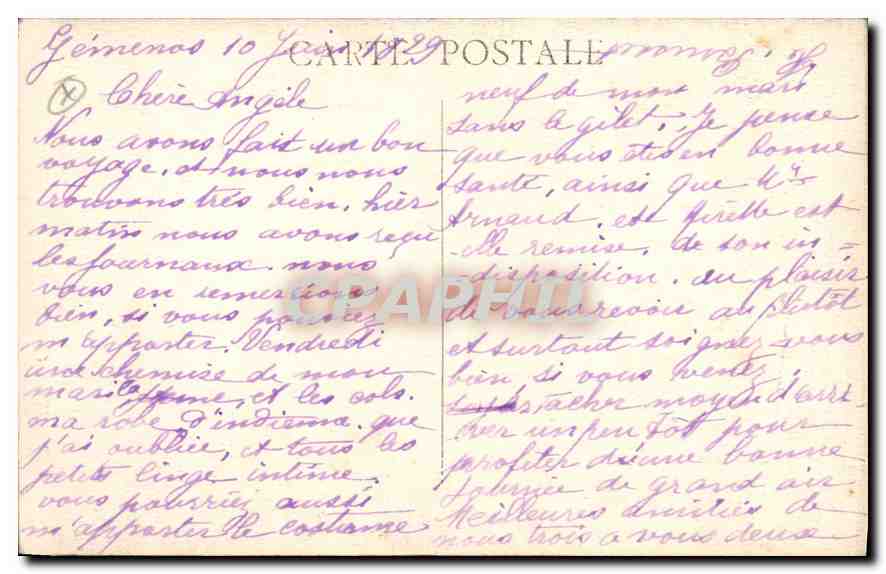 Gémenos 10 Juin 1929
CARTE POSTALE
Chère Angèle
Nous avons fait un bon
voyage, et nous nous
trouvons très bien, hier
matin nous avons reçu
les journaux. nous
vous en remercions
bien, si vous pouviez
m'apporter. Vendredi
une chemise de mon
mari la jaune, et les cols.
ma robe d'indienne. que
j'ai oubliée, et tous les
petits linge intime.
vous pourriez aussi
m'apporter le costume
neuf de mon mari
sans le gilet. Je pense
que vous êtes en bonne
santé, ainsi que Mr
Arnaud, et Mireille est
-elle remise, de son in=
=disposition. au plaisir
de vous revoir au plutôt
et surtout soignez-vous
bien, si vous venez,
tacher moyen d'arri-
ver un peu tôt pour
profiter d'une bonne
journée de grand air
Meilleures amitiés de
nous trois a vous deux
CPAPHIL